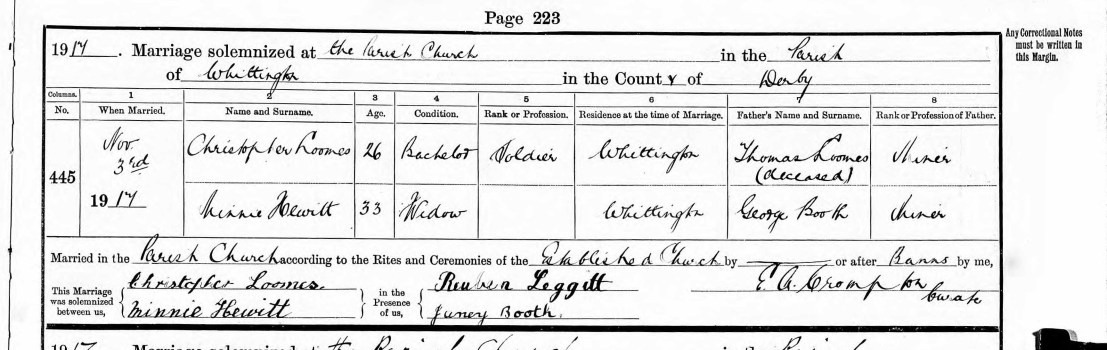 Page 223
Any Correctional Notes
must be written in
this Margin.
1917. Marriage solemnized at the Parish Church in the Parish
of Whittington in the County of Derby
Columns. 1 2 3 4 5 6 7 8
No. When Married. Name and Surname. Age. Condition. Rank or Profession. Residence at the time of Marriage. Father's Name and Surname. Rank or Profession of Father.
445 Nov. 3rd 1917 Christopher Loomes 26 Bachelor Soldier Whittington Thomas Loomes (deceased) Miner
Minnie Hewitt 33 Widow Whittington George Booth Miner
Married in the Parish Church according to the Rites and Ceremonies of the Established Church by ——— or after Banns by me,
This Marriage was solemnized between us, Christopher Loomes. in the Presence of us, Reuben Leggitt E. A. Crompton
Minnie Hewitt Juney Booth. Curate
1917 Marriage solemnized at the Parish Church in the Parish